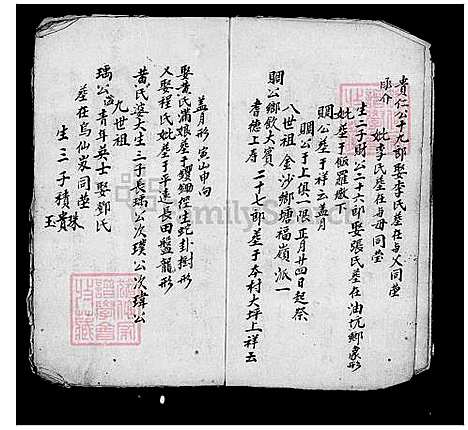 貴仁公十九郎娶李氏葬在与父同塋
妣李氏葬在与母同塋
生一子財公二十六郎娶張氏葬在油坑鄉象形
妣葬于伍羅墩下
賜公葬于祥云蓋月
賜公于上俱一限正月廿四日起祭
八世祖金沙鄉塘福嶺派一
賜公鄉飲大賓
耆德上壽二十七郎葬于本村大坪上祥云
蓋月形寅山申向
娶黃氏滿娘葬于鑼鼓徑生蛇卦樹形
又娶程氏妣葬于平遠長田盤龍形
黃氏婆大生三子長瑀公次璞公次瑋公
九世祖
瑀公諡青年英士娶鄧氏
葬在烏仙岌同塋
生三子積貴珠
玉
FamilySearch